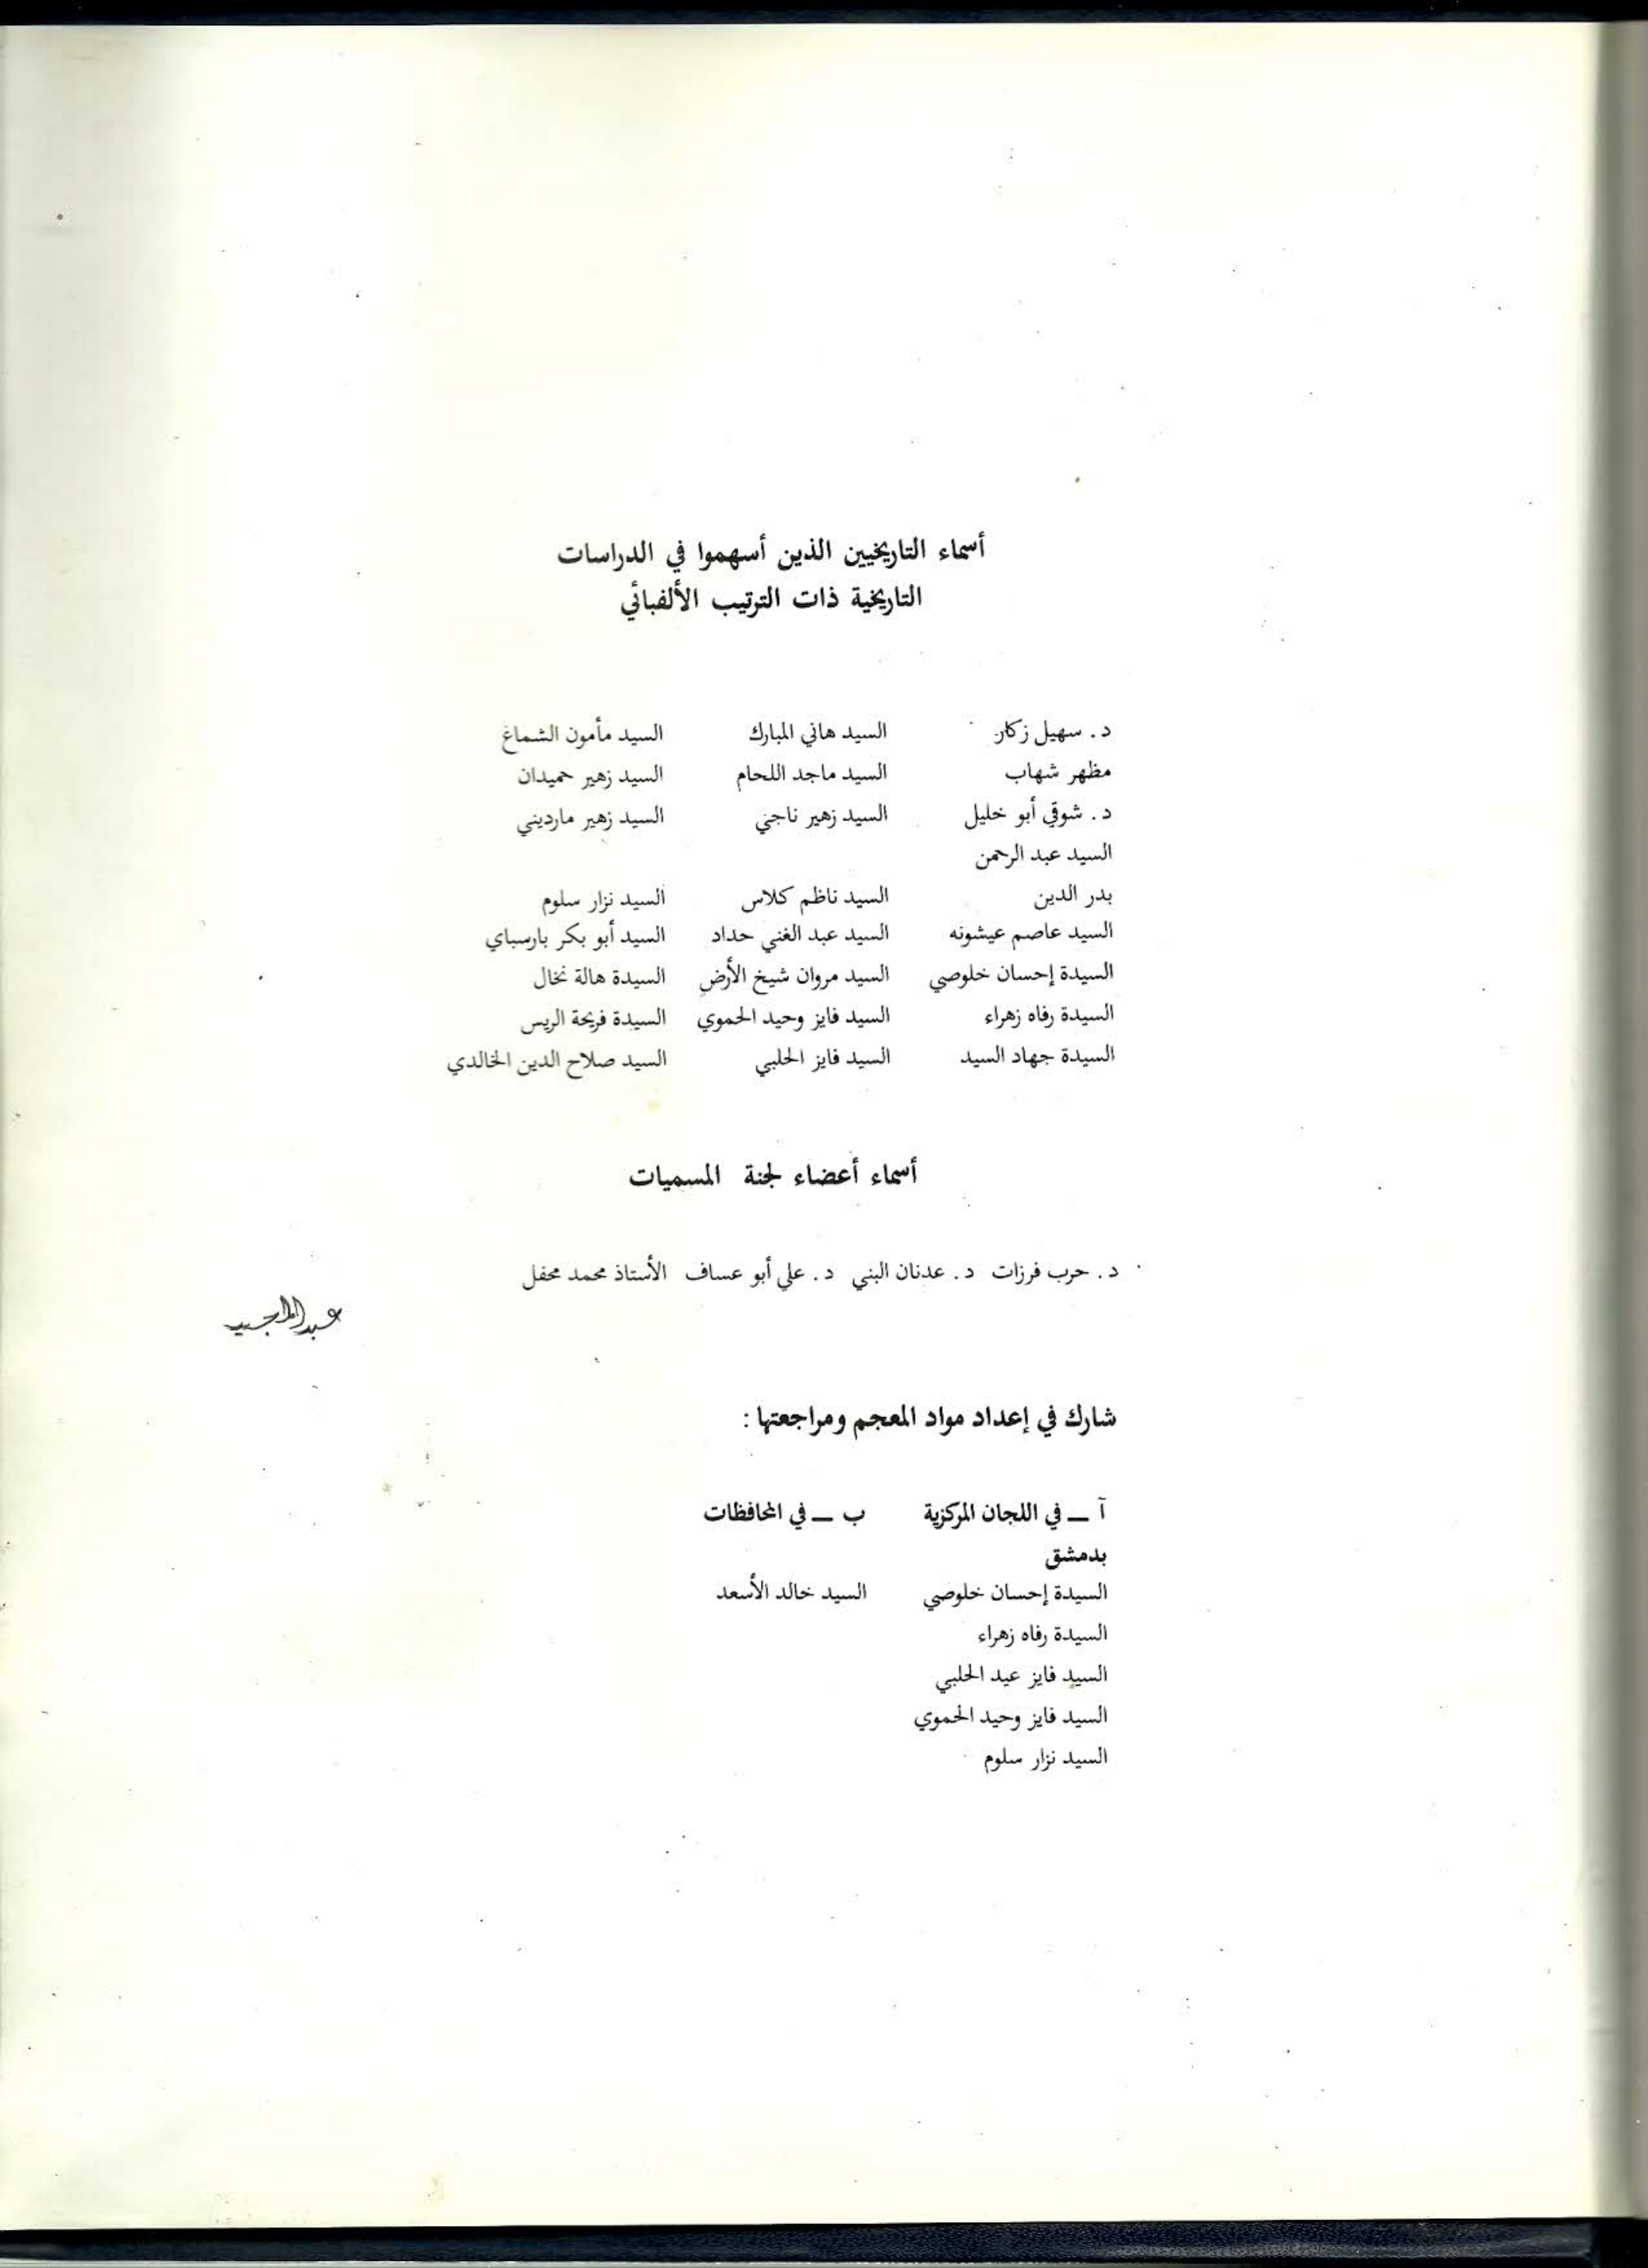 أسماء التاريخيين الذين أسهموا في الدراسات
التاريخية ذات الترتيب الألفبائي
د. سهيل زكار السيد هاني المبارك السيد مأمون الشماغ
مظهر شهاب السيد ماجد اللحام السيد زهير حميدان
د. شوقي أبو خليل السيد زهير ناجي السيد زهير مارديني
السيد عبد الرحمن
بدر الدين السيد ناظم كلاس السيد نزار سلوم
السيد عاصم عيشونه السيد عبد الغني حداد السيد أبو بكر بارسباي
السيدة إحسان خلوصي السيد مروان شيخ الأرض السيدة هالة نخال
السيدة رفاه زهراء السيد فايز وحيد الحموي السيدة فريحة الريس
السيدة جهاد السيد السيد فايز الحلبي السيد صلاح الدين الخالدي
أسماء أعضاء لجنة المسميات
د. حرب فرزات د. عدنان البني د. علي أبو عساف الأستاذ محمد محفل
عبدالماجيد
شارك في إعداد مواد المعجم ومراجعتها :
آ ــ في اللجان المركزية ب ــ في المحافظات
بدمشق
السيدة إحسان خلوصي السيد خالد الأسعد
السيدة رفاه زهراء
السيد فايز عيد الحلبي
السيد فايز وحيد الحموي
السيد نزار سلوم